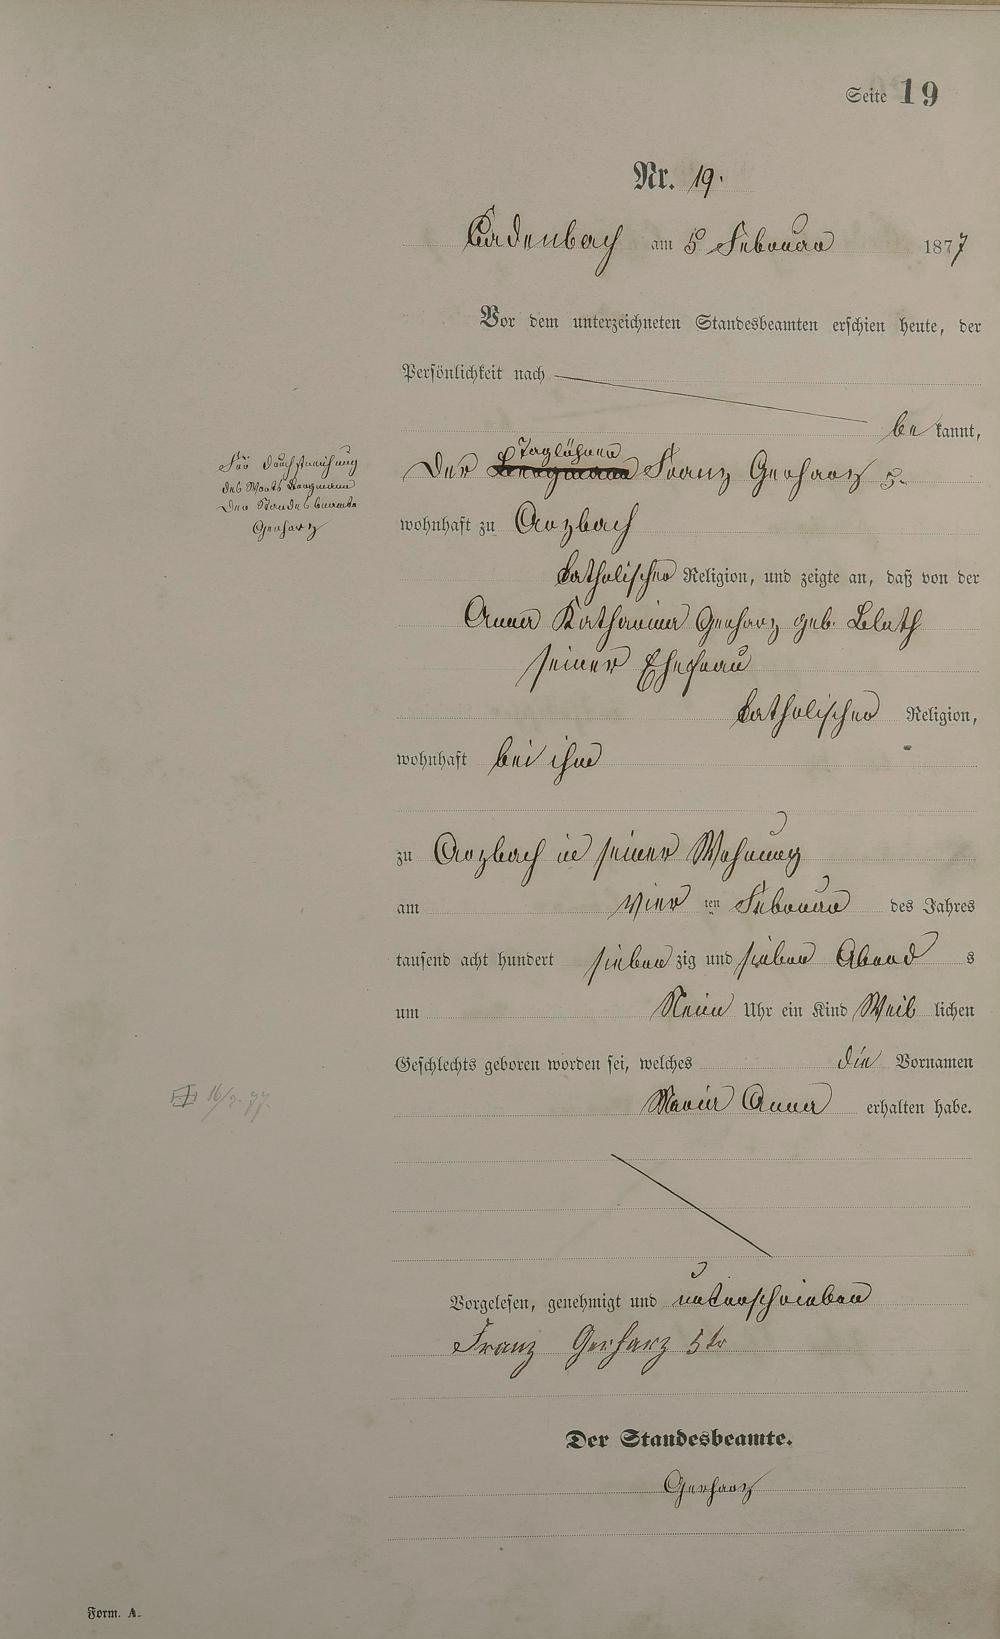 Seite 19
Nr. 19.
Cadenbach am 5 Februar 1877
Vor dem unterzeichneten Standesbeamten erschien heute, der
Persönlichkeit nach
bekannt,
Taglöhner
Der Bergmann Franz Gerharz 5.
Für Durchstreichung
des Worts Bergmann
Der Standesbeamte
Gerharz
wohnhaft zu Arzbach
katholischer Religion, und zeigte an, daß von der
Anna Katharina Gerharz geb. Blath
seiner Ehefrau
katholischer Religion,
wohnhaft bei ihm
zu Arzbach in seiner Wohnung
am vier ten Februar des Jahres
tausend acht hundert sieben zig und sieben Abend s
um Neun Uhr ein Kind Weib lichen
Geschlechts geboren worden sei, welches die Vornamen
Maria Anna erhalten habe.
16/2. 77.
Vorgelesen, genehmigt und unterschrieben
Franz Gerharz 5tr
Der Standesbeamte.
Gerharz
Form. A.